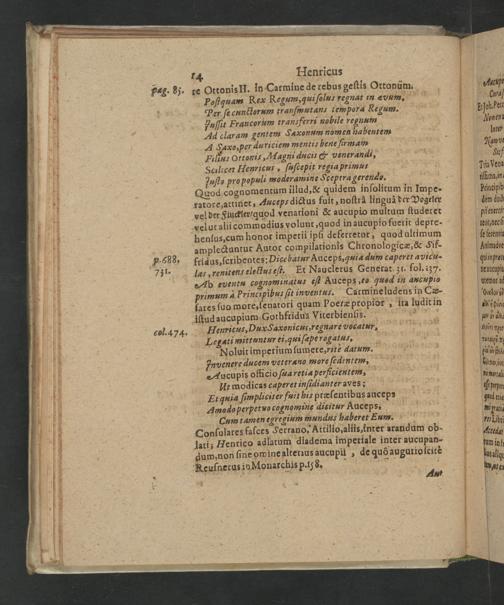 14 Henricus
pag. 85. te Ottonis II. In Carmine de rebus gestis Ottonum.
Postquam Rex Regum, qui solus regnat in ævum,
Per se cunctorum transmutans tempora Regum.
Jussit Francorum transferri nobile regnum
Ad claram gentem Saxonum nomen habentem
A Saxo, per duriciem mentis bene firmam
Filius Ottonis, Magni ducis & venerandi,
Scilicet Henricus, suscepit regia primus
Justo pro populi moderamine Sceptra gerendo.
Quod cognomentum illud, & quidem insolitum in Impe-
ratore, attinet, Auceps dictus fuit, nostrâ linguâ der Vogeler
vel der Finckler/quod venationi & aucupio multum studeret
vel ut alii commodius volunt, quod in aucupio fuerit depre-
hensus, cum honor imperii ipsi deferretur, quod ultimum
amplectuntur Autor compilationis Chronologicæ, & Sif-
p. 688, fridus, scribentes; Dicebatur Auceps, quia dum caperet avicu-
731. las, renitens electus est. Et Nauclerus Generat. 31. fol. 137.
Ab eventu cognominatus est Auceps, eo quod in aucupio
primum à Principibus sit inventus. Carmine ludens in Cæ-
sares suo more, senatori quam Poetæ propior, ita ludit in
istud aucupium Gothfridus Viterbiensis.
col. 474. Henricus, Dux Saxonicus, regnare vocatur,
Legati mittuntur ei, qui sæpe rogatus,
Noluit imperium sumere, ritè datum.
Invenere ducem veterano more sedentem,
Aucupis officio sua retia perficientem,
Ut modicas caperet insidianter aves;
Et quia simpliciter fuit his præsentibus auceps
Amodo perpetuo cognomine dicitur Auceps,
Cum tamen egregium mundus haberet Eum.
Consulares fasces Serrano, Attilio, aliis, inter arandum ob-
lati; Henrico adlatum diadema imperiale inter aucupan-
dum, non sine omine alterius aucupii, de quô augurio scitè
Reusnerus in Monarchis p. 158.
Aut